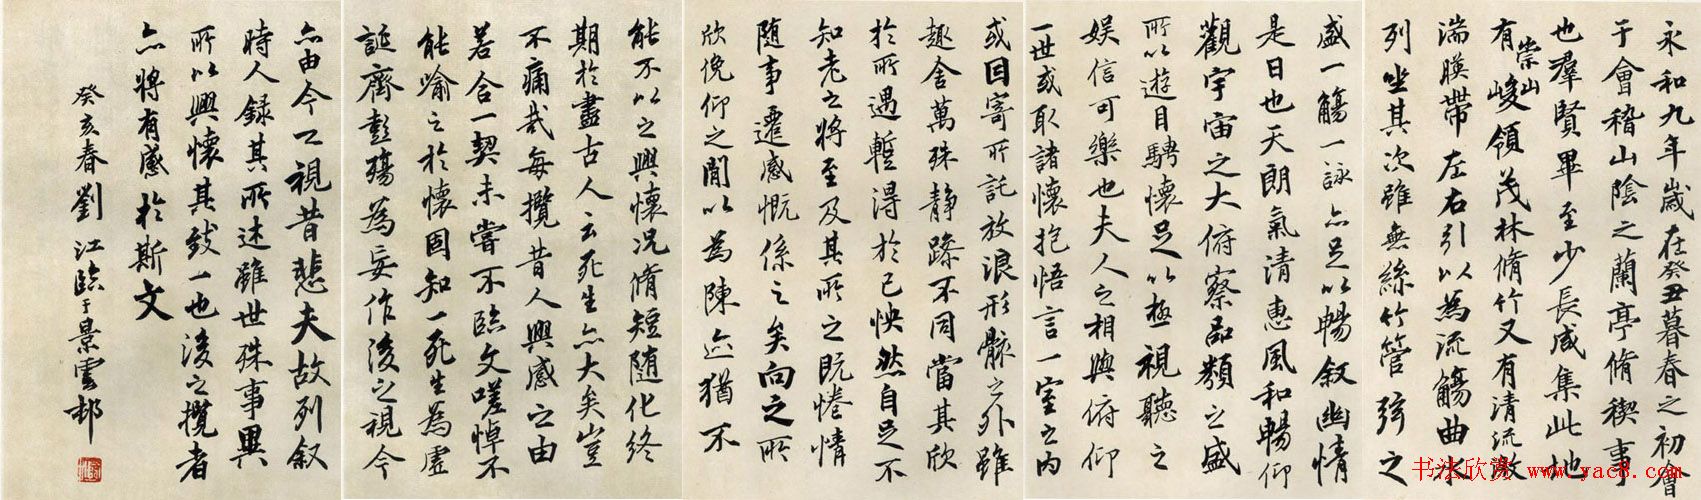 永和九年歲在癸丑暮春之初會
于會稽山陰之蘭亭脩稧事
也羣賢畢至少長咸集此地
有崇山峻領茂林脩竹又有清流激
湍暎帶左右引以為流觴曲水
列坐其次雖無絲竹管弦之
盛一觴一詠亦足以暢叙幽情
是日也天朗氣清惠風和暢仰
觀宇宙之大俯察品類之盛
所以遊目騁懷足以極視聽之
娛信可樂也夫人之相與俯仰
一世或取諸懷抱悟言一室之內
或因寄所託放浪形骸之外雖
趣舍萬殊静躁不同當其欣
於所遇蹔得於己怏然自足不
知老之將至及其所之既惓情
随事遷感慨係之矣向之所
欣俛仰之閒以為陳迹猶不
能不以之興懷况脩短随化終
期於盡古人云死生亦大矣豈
不痛哉每攬昔人興感之由
若合一契未嘗不臨文嗟悼不
能喻之於懷固知一死生為虛
誕齊彭殤為妄作後之視今
亦由今之視昔悲夫故列叙
時人錄其所述雖世殊事異
所以興懷其致一也後之攬者
亦將有感於斯文
癸亥春劉江臨于景雲邨
书法欣赏 www.yac8.com